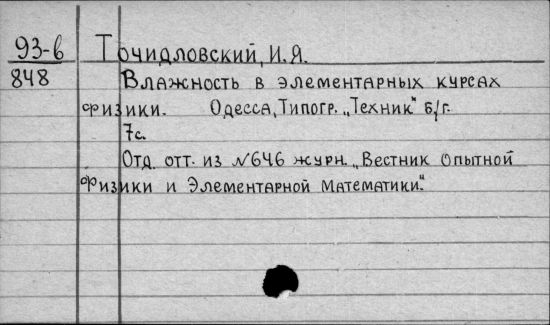 93-6 Точидловский, И.Я.
848 Влажность в элементарных курсах
физики. Одесса, Типогр. „Техник" б/г.
7с.
Отд. отт. из №646 журн. „Вестник Опытной
Физики и Элементарной Математики."